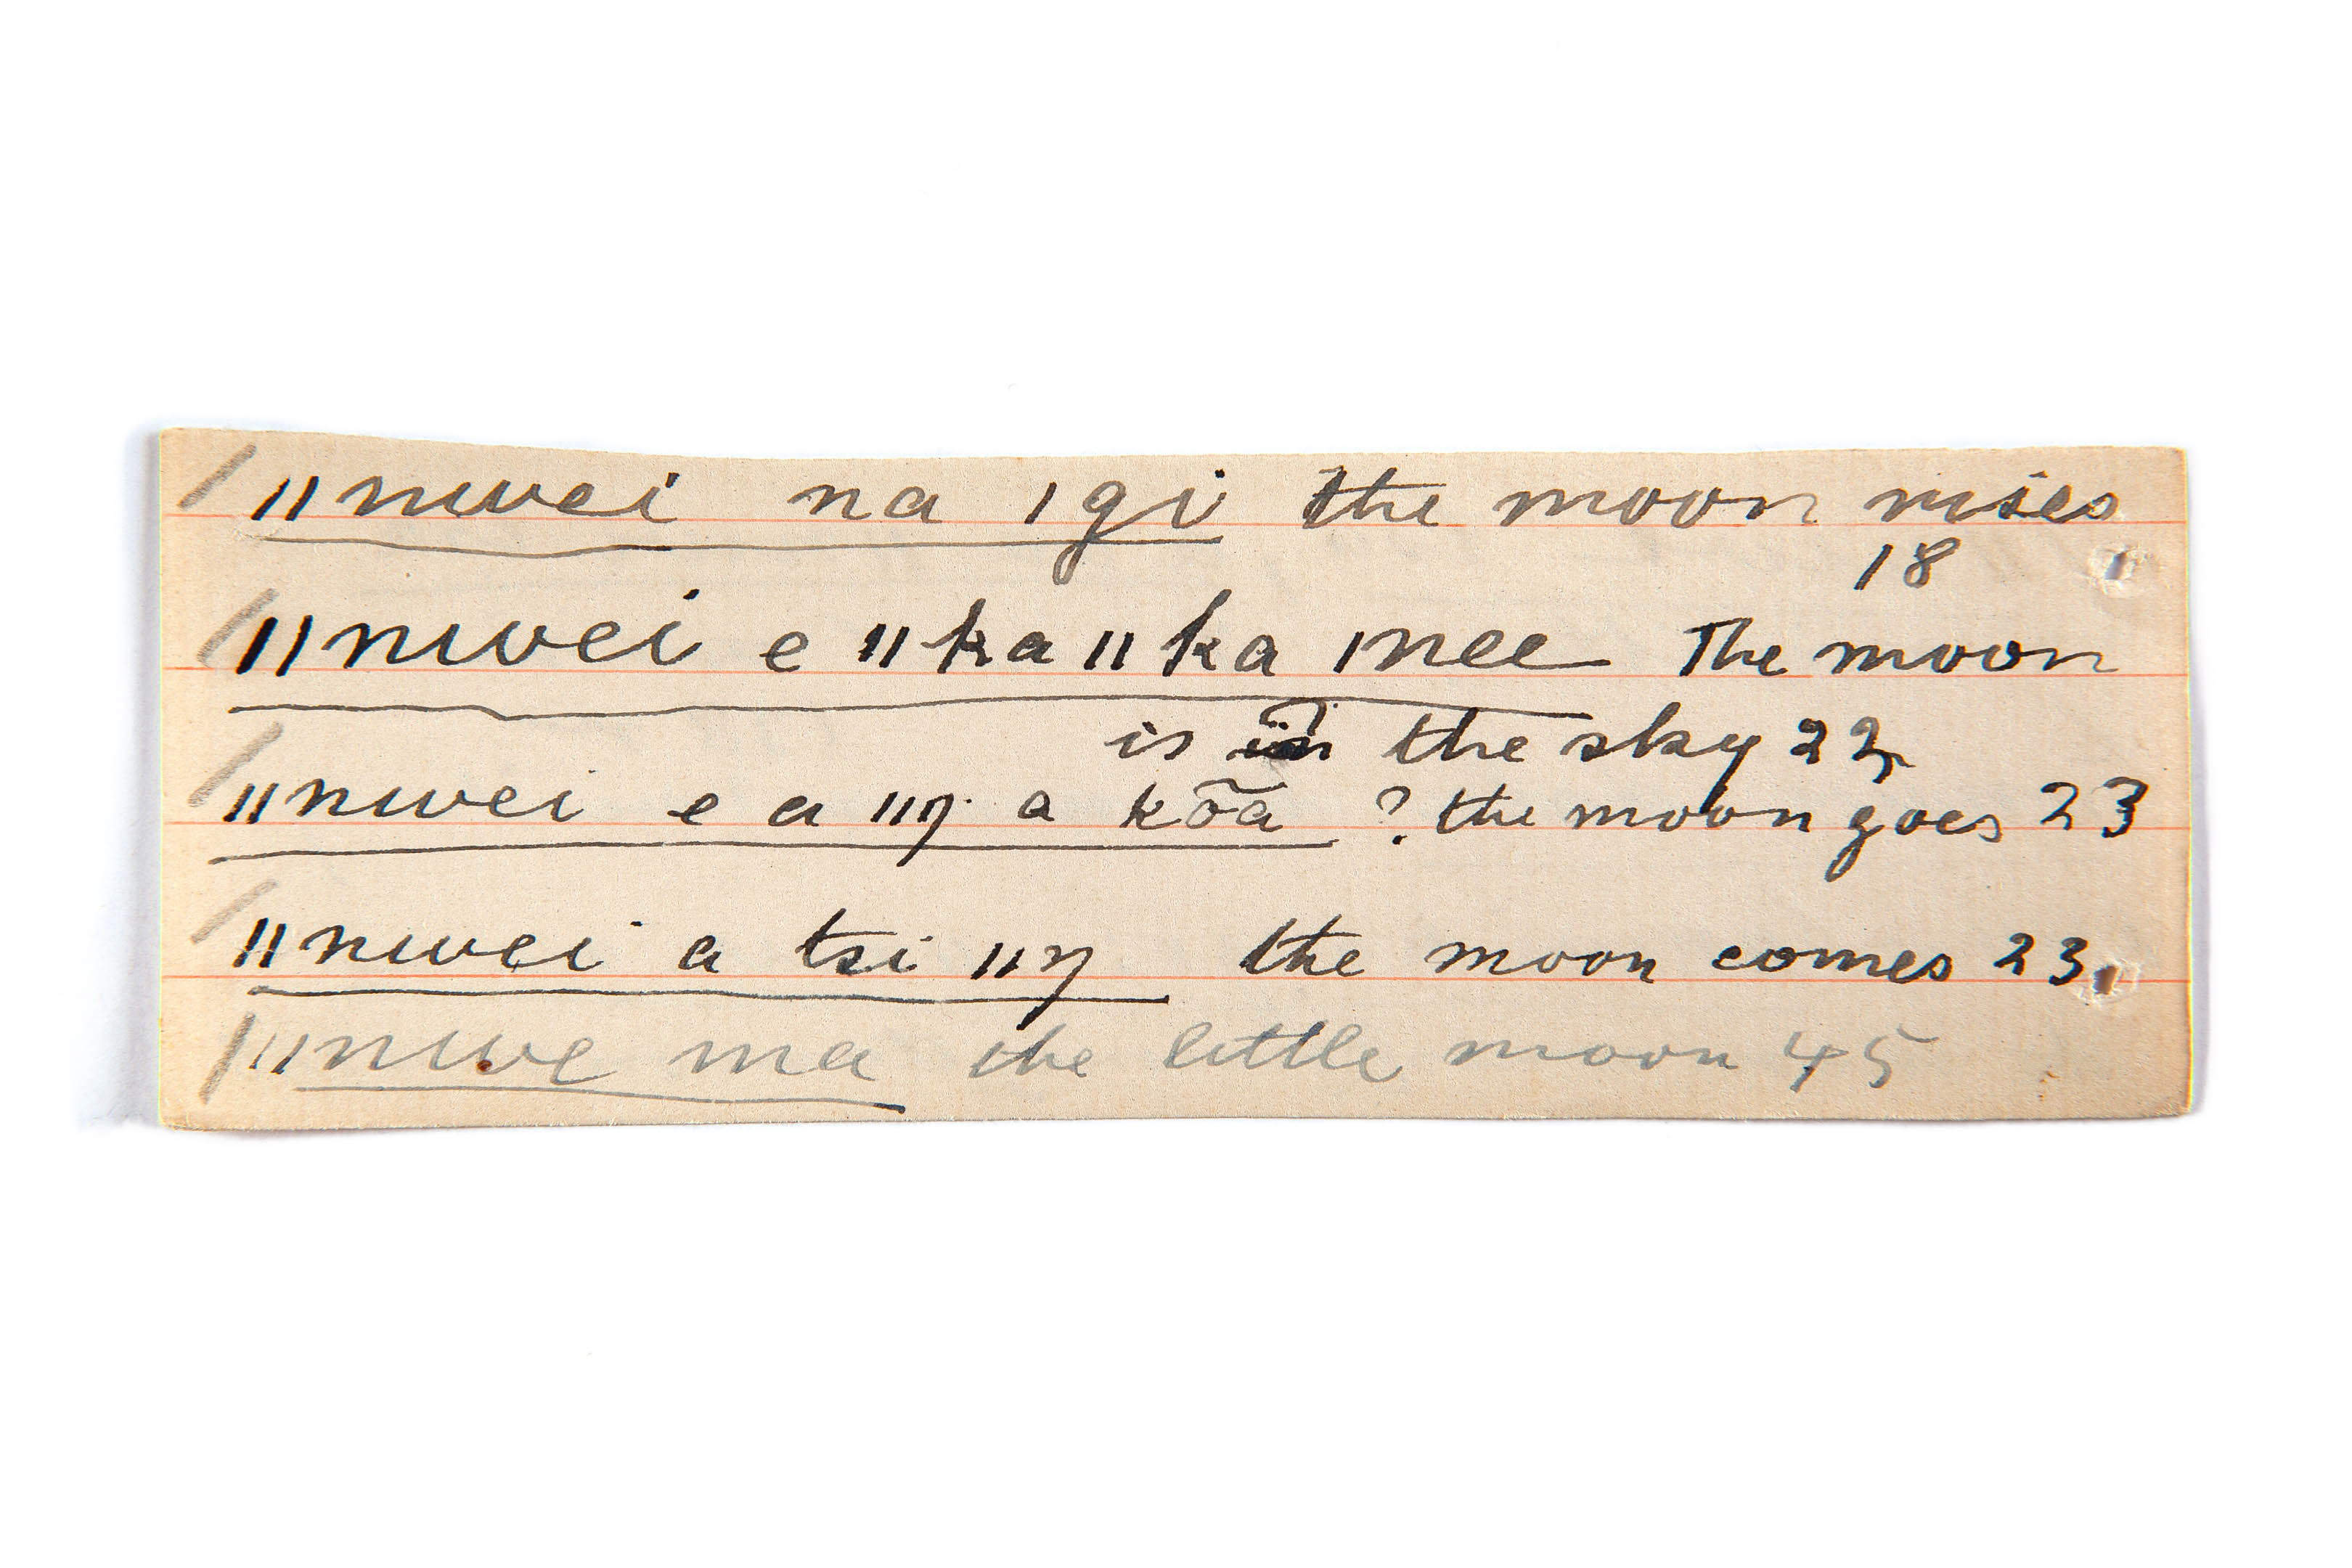 ǁnwei na ǀgi the moon rises
18
ǁnwei e ǁkaǁka ǀnee The moon
is in the sky 22
ǁnwei e a ǁŋ a kõa ? the moon goes 23
ǁnwei a tsi ǁŋ the moon comes 23
ǁnwe ma the little moon 45